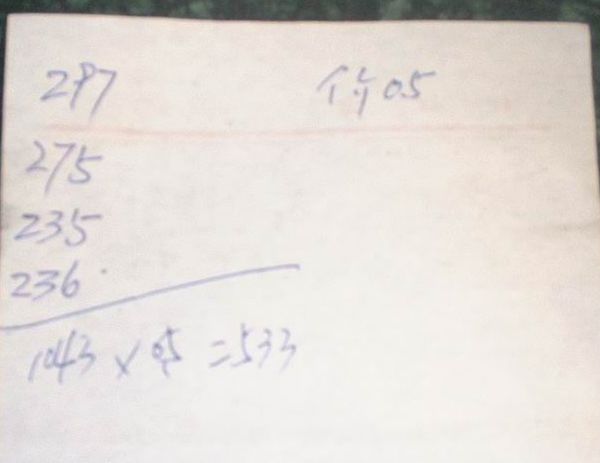 297 价 0.5
275
235
236
1043 × 0.5 = 533